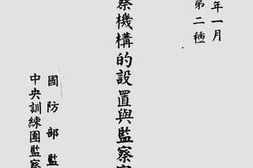 年一月
第二種
察機構的設置與監察
國防部監
中央訓練團監察